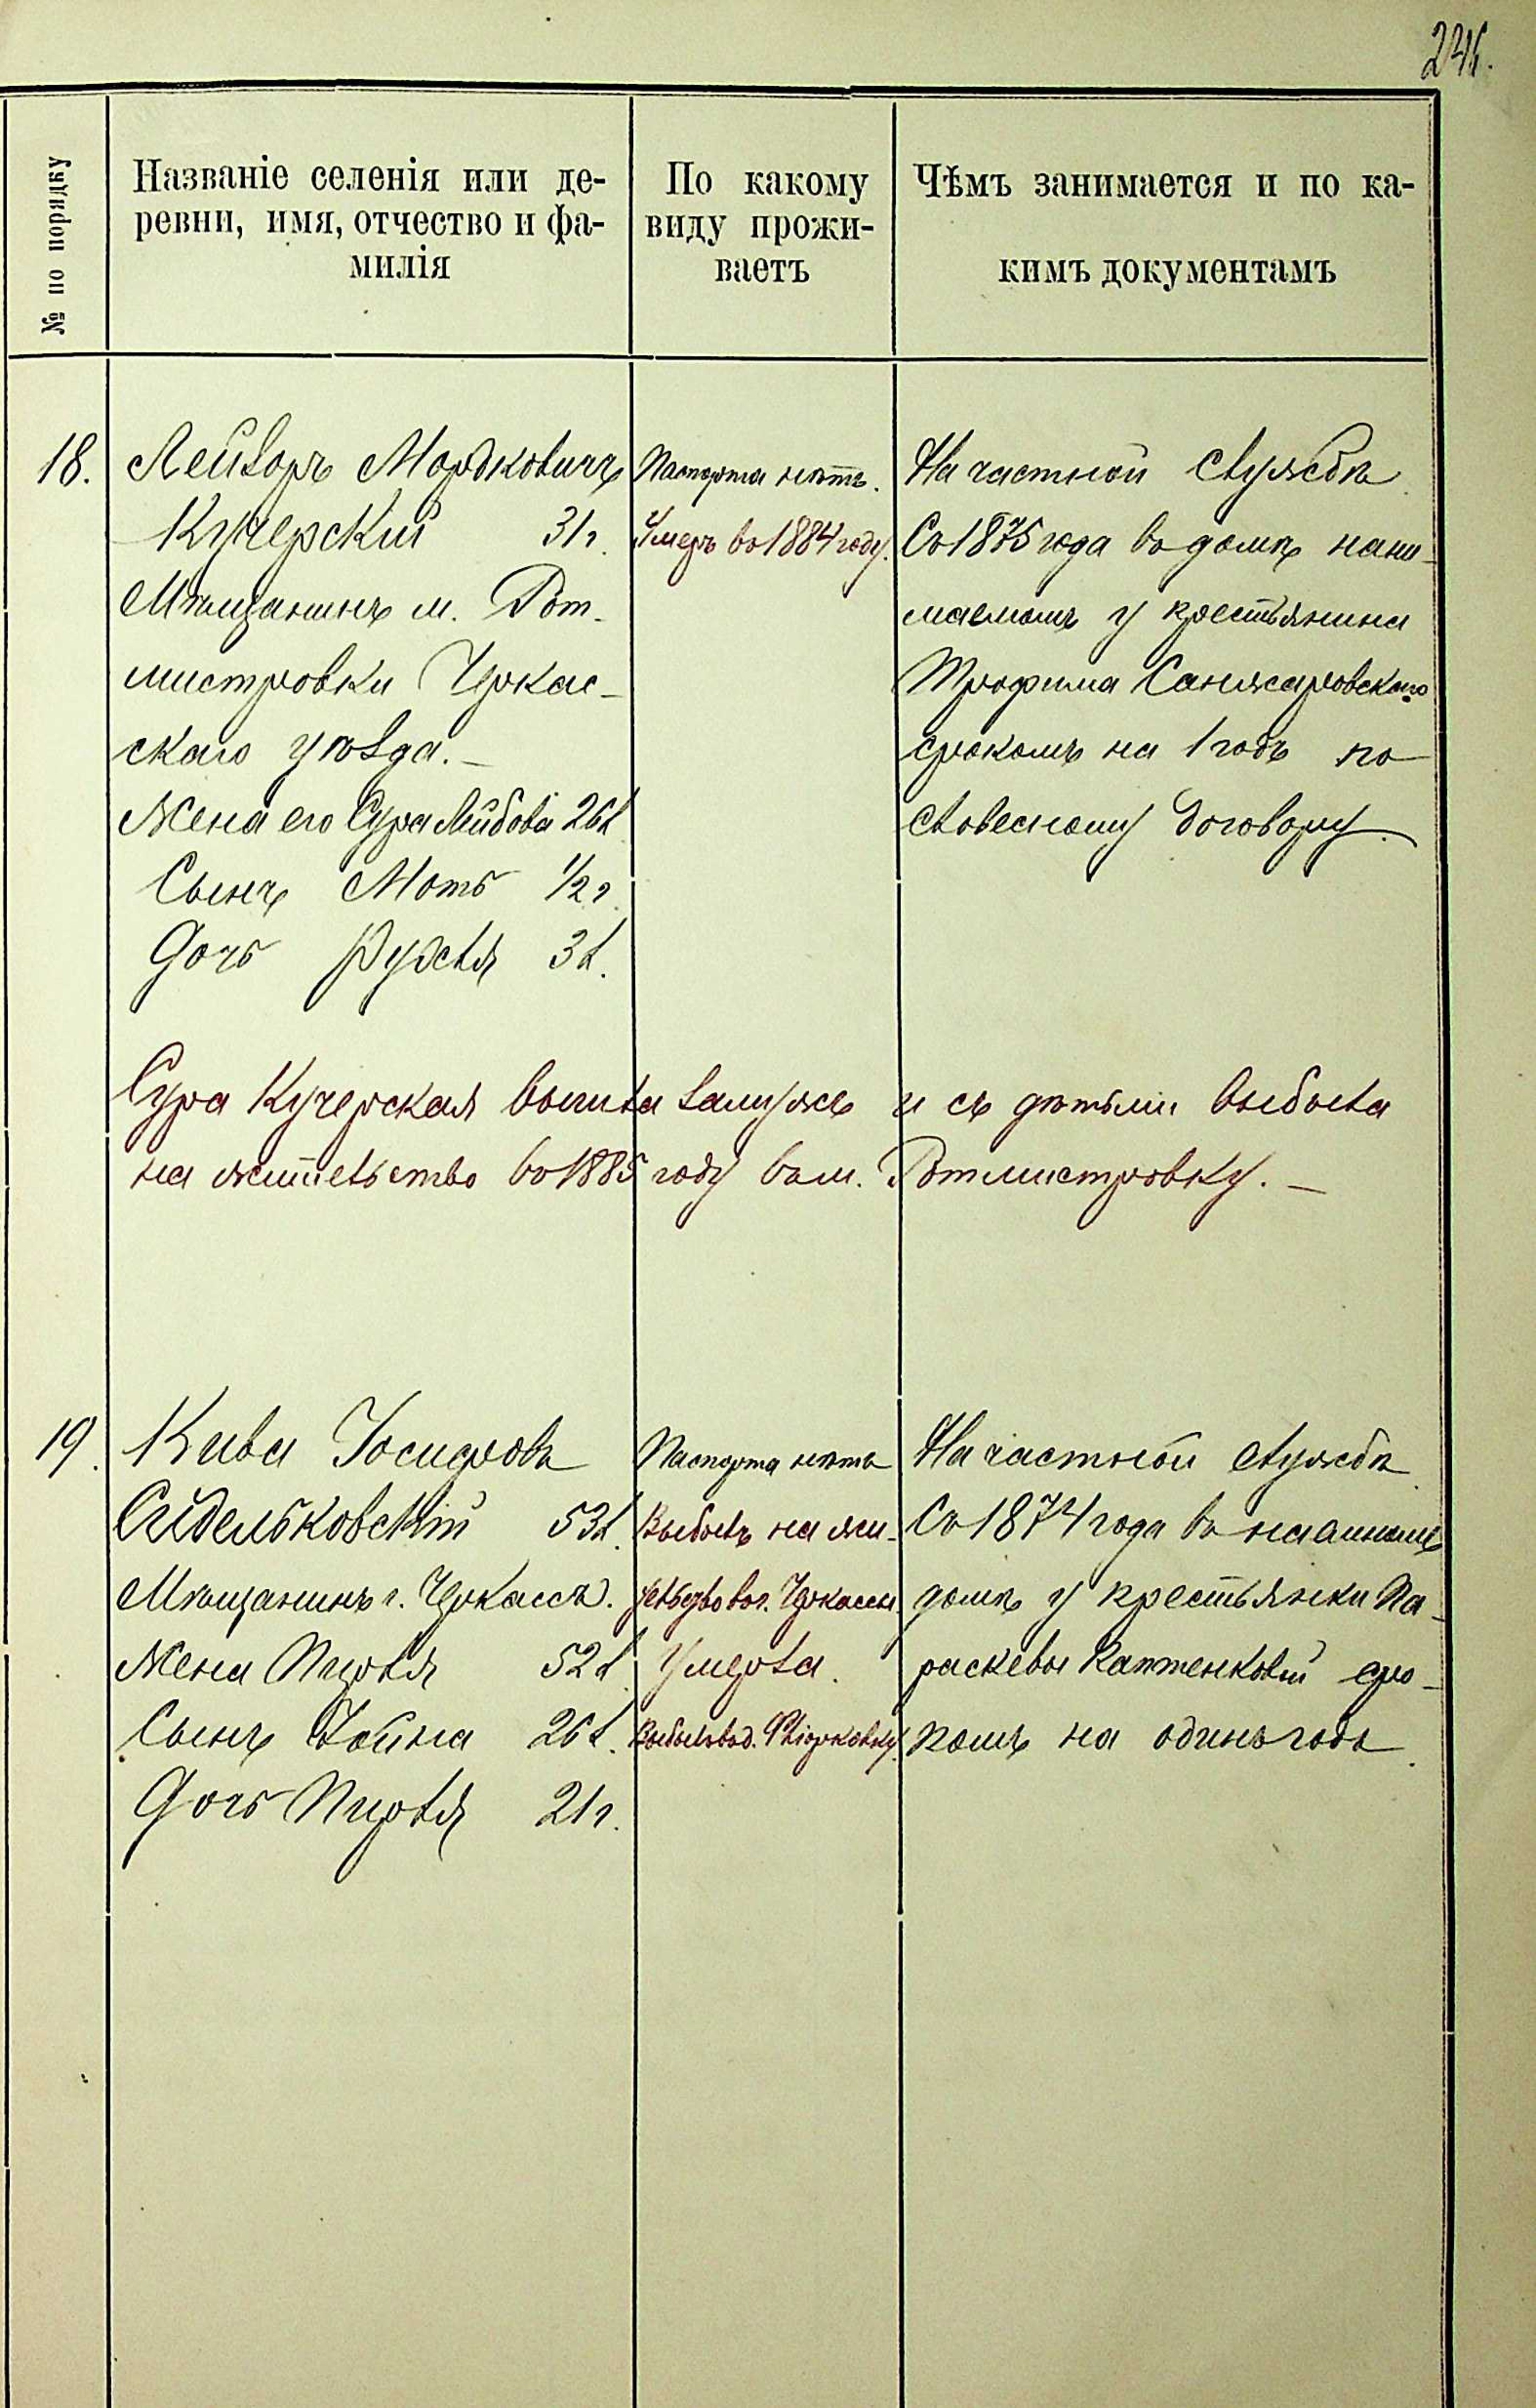 246.
№ по порядку
Названіе селенія или де-
ревни, имя, отчество и фа-
милія
По какому
виду прожи-
ваетъ
Чѣмъ занимается и по ка-
кимъ документамъ
18.
Лейзоръ Мордковичъ
Кучерский 31 г.
Мѣщанинъ м. Рот-
мистровки Черкас-
скаго уѣзда. —
Жена его Сура Лейбова 26 л
Сынъ Моть 1/2 г.
Дочь Рухля 3 л.
Паспорта нѣтъ.
Умеръ въ 1884 году.
На частной службѣ
Съ 1875 года въ домѣ нани-
маемомъ у крестьянина
Трофима Санжаровскаго
срокомъ на 1 годъ по
словесному договору.
Сура Кучерская вышла замужъ и съ дѣтьми выбыла
на жительство въ 1885 году въ м. Ротмистровку. —
19.
Кива Іосифовъ
Сидельковскій 53 л.
Мѣщанинъ г. Черкассъ.
Жена Перля 52 л.
Сынъ Хойна 26 л.
Дочь Перля 21 г.
Паспорта нѣтъ
Выбылъ на жи-
тельство въ г. Черкассы.
Умерла.
Выбылъ въ д.
На частной службѣ
Съ 1874 года въ наемномъ
домѣ у крестьянки Па-
раскевы сро-
комъ на одинъ годъ.